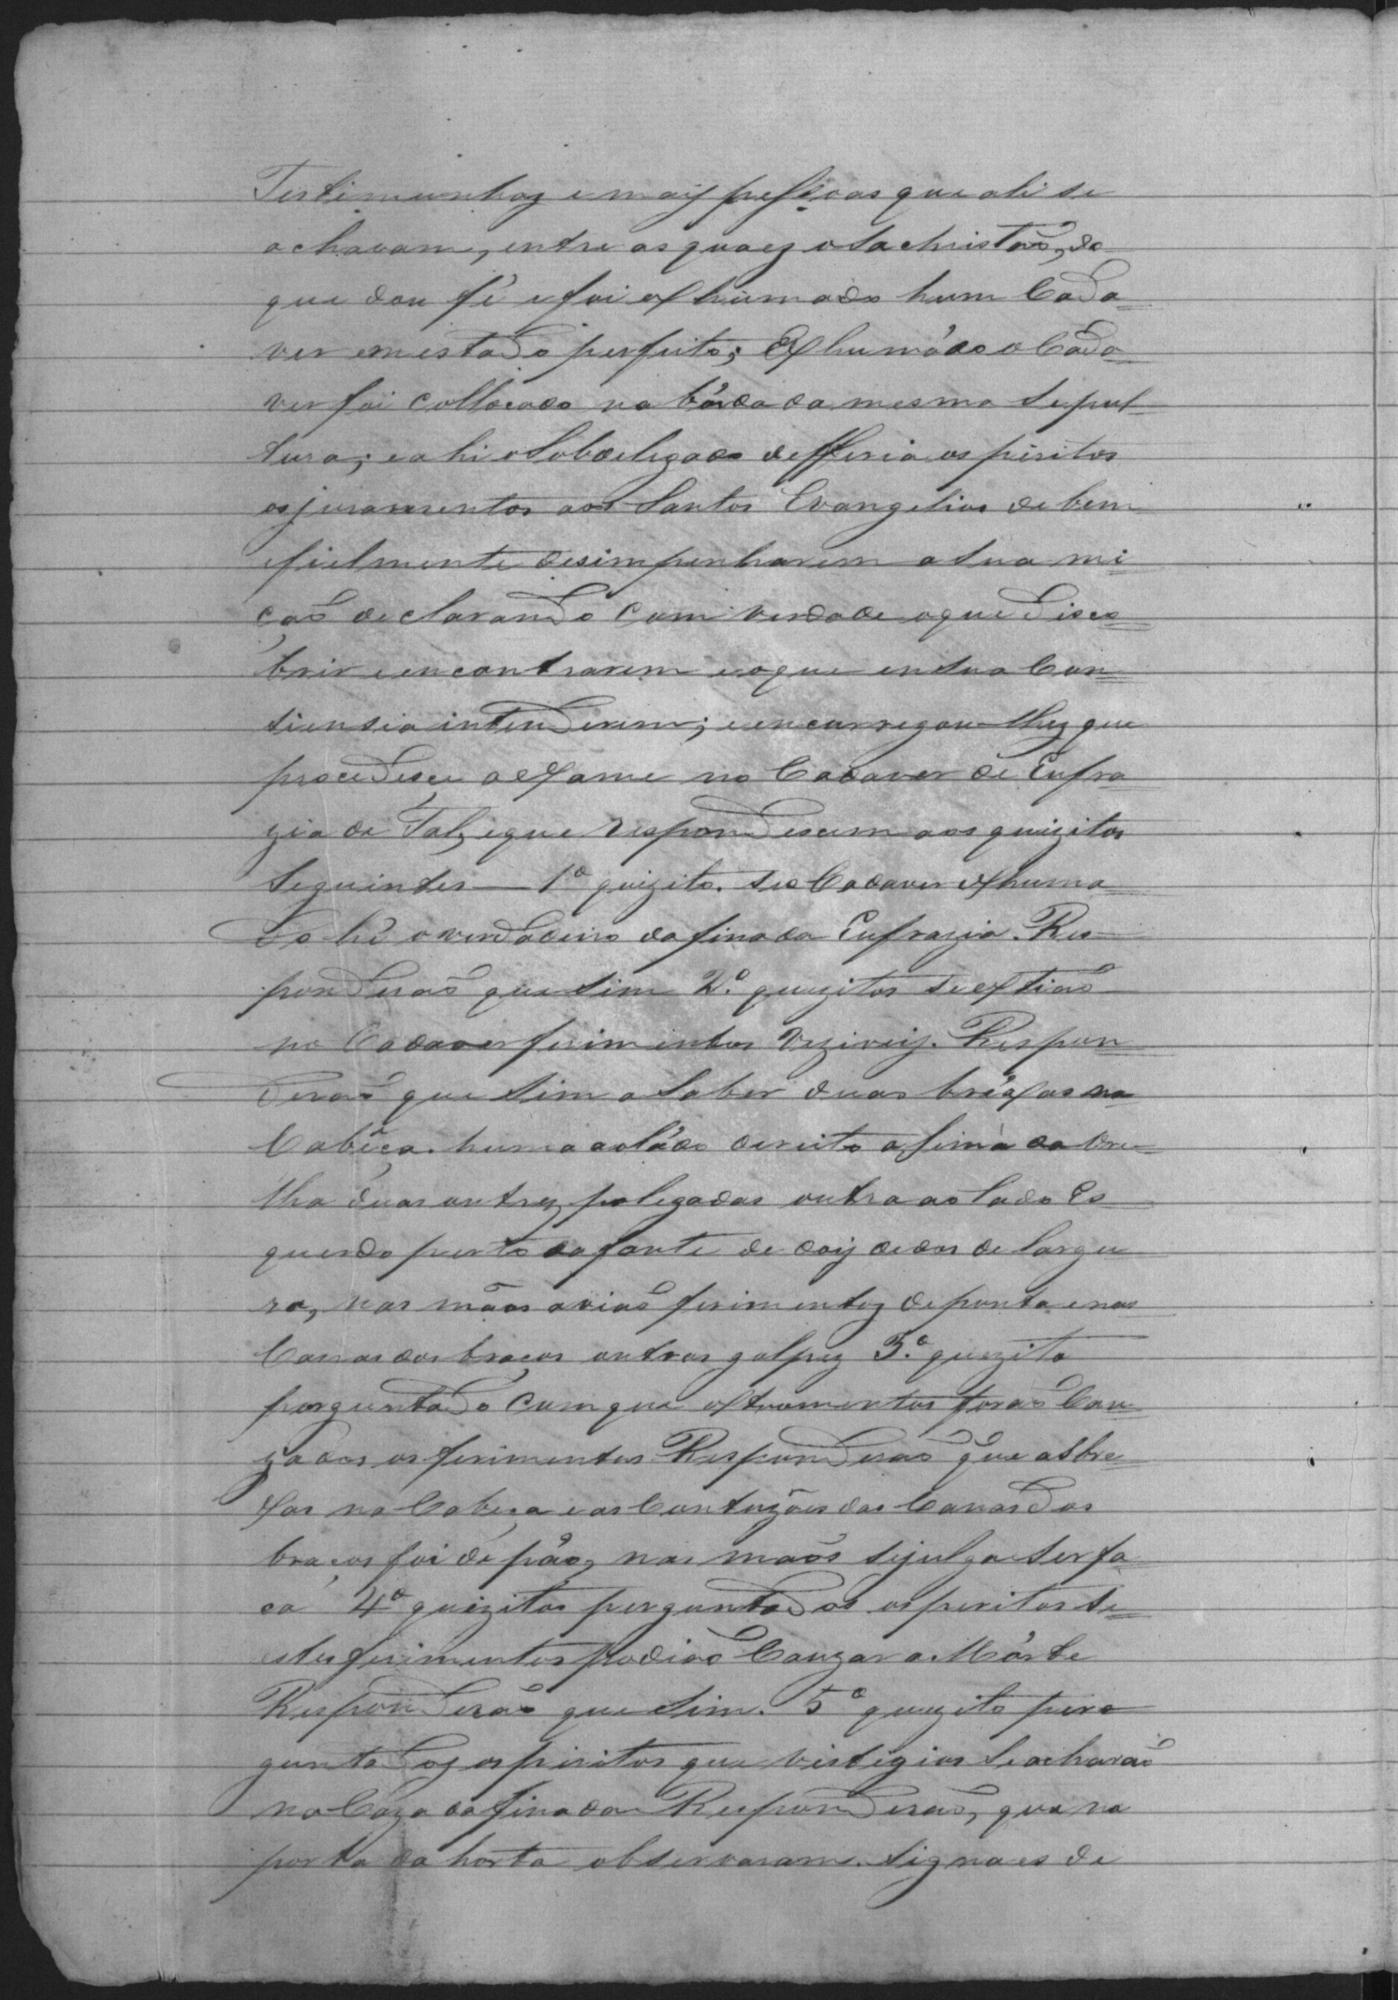 Testimunhaz e maiz pessoas que ali se
achavam, entre as quaez o Sachristaõ, do
que dou fé e foi exhumado hum Cada=
ver em estado perfeito; Exhumádo o Cáda=
ver foi collocado na bórda da mesma Sepul=
tura; e ahi o Sobdelegado defferio os piritos
os juramentos aos Santos Evangelios de bem
e fielmente desimpenharem a sua mi=
çaõ declarando com verdade o que disco=
brir e encontrarem e o que en sua Con=
siensia intenderem; e encarregou-lhez que
procedesce o exame no Cadaver de Eufra=
zia de Tal, e que respondescem aos quizitos
Seguintes — 1º quizito. Se o Cadaver exhuma=
do hé o verdadeiro da finada Eufrazia. Res=
ponderaõ que sim 2º. quizitos se extiaõ
no Cadaver ferimentos viziveiz. Respon=
deraõ que sim a saber duas bréxas na
Cabêça. huma ao ládo dereito asima da Ore=
lha duas ou trez polegadas outra ao lado Es=
querdo perto da fonte de doiz dedos de largu=
ra, nas mãos varios ferimentoz de ponta e nas
Canas dos braços outros golpez 3.º quizito
perguntado cum que extromentos foraõ Cau=
zados os ferimentos Responderaõ que as bre=
xas na Cabeça e as Contuzões das Canas dos
braços foi de páo, nas maõs sejulga ser fa=
ca 4º quizitos perguntados os peritos se=
estes ferimentos podiaõ Cauzar a Mórte
Responderaõ que sim. 5º quizito pero
guntadoz os piritos que vistigios se acharaõ
na Caza da finada Responderaõ, que na
porta da horta observaram signaes de